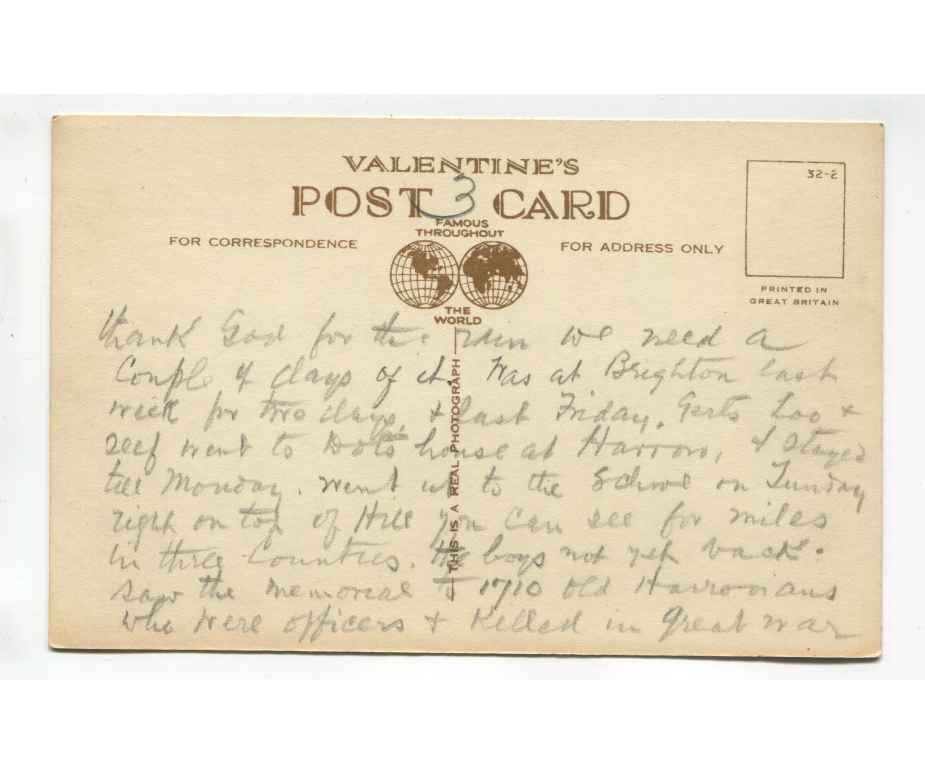 VALENTINE'S
32-2
POST CARD
3
FAMOUS
THROUGHOUT
FOR CORRESPONDENCE
FOR ADDRESS ONLY
THE
WORLD
PRINTED IN
GREAT BRITAIN
THIS IS A REAL PHOTOGRAPH
thank God for the rain we need a
Couple of days of it. Was at Brighton last
week for two days, & last Friday, Gerts Loo &
self went to Dots house at Harrow, & stayed
till Monday. went up to the School on Sunday
right on top of Hill you can see for miles
in three Counties. the boys not yet back.
Saw the memorial to 1710 Old Harrovians
who were officers & Killed in great war